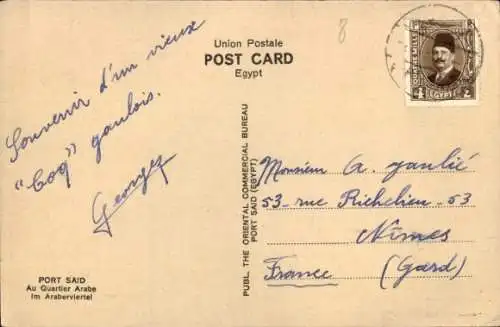 8
Union Postale
POST CARD
Egypt
Souvenir d'un vieux
"Coq" gaulois.
Georges
PORT SAID
Au Quartier Arabe
Im Araberviertel
PUBL. THE ORIENTAL COMMERCIAL BUREAU
PORT SAID (EGYPT)
EGYPTE
Monsieur A. Jaulié
53 - rue Richelieu - 53
Nîmes
France (Gard)